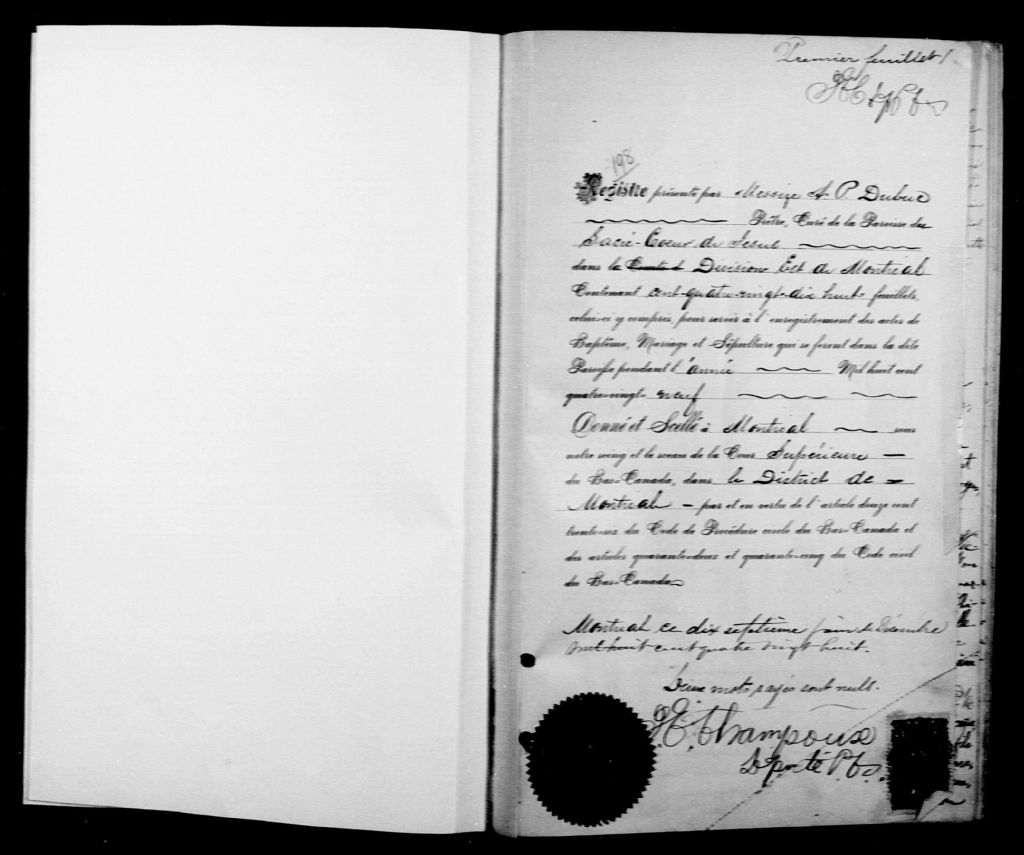 Premier feuillet 1
198
Registre présenté par Messire A. P. Dubuc
Prêtre, Curé de la Paroisse du
Sacré-Coeur de Jesus
dans la Division Est de Montréal
Contenant cent-quatre-vingt-dix huit feuillets,
celui-ci y compris, pour servir à l'enregistrement des actes de
Baptême, Mariage et Sépulture que se feront dans la dite
Paroisse pendant l'année Mil huit cent
quatre-vingt-neuf
Donné et Scellé à Montréal sous
notre seing et le sceau de la Cour Supérieure
du Bas-Canada, dans le District de
Montréal par et en vertu de l'article douze cent
trente-six du Code de Procédure civile du Bas-Canada et
des articles quarante-deux et quarante-cinq du Code civil
du Bas-Canada
Montréal ce dix septième jour de Décembre
mil huit cent quatre vingt huit.
Deux mots rayés sont nuls.
G. E. Champoux
Député P.